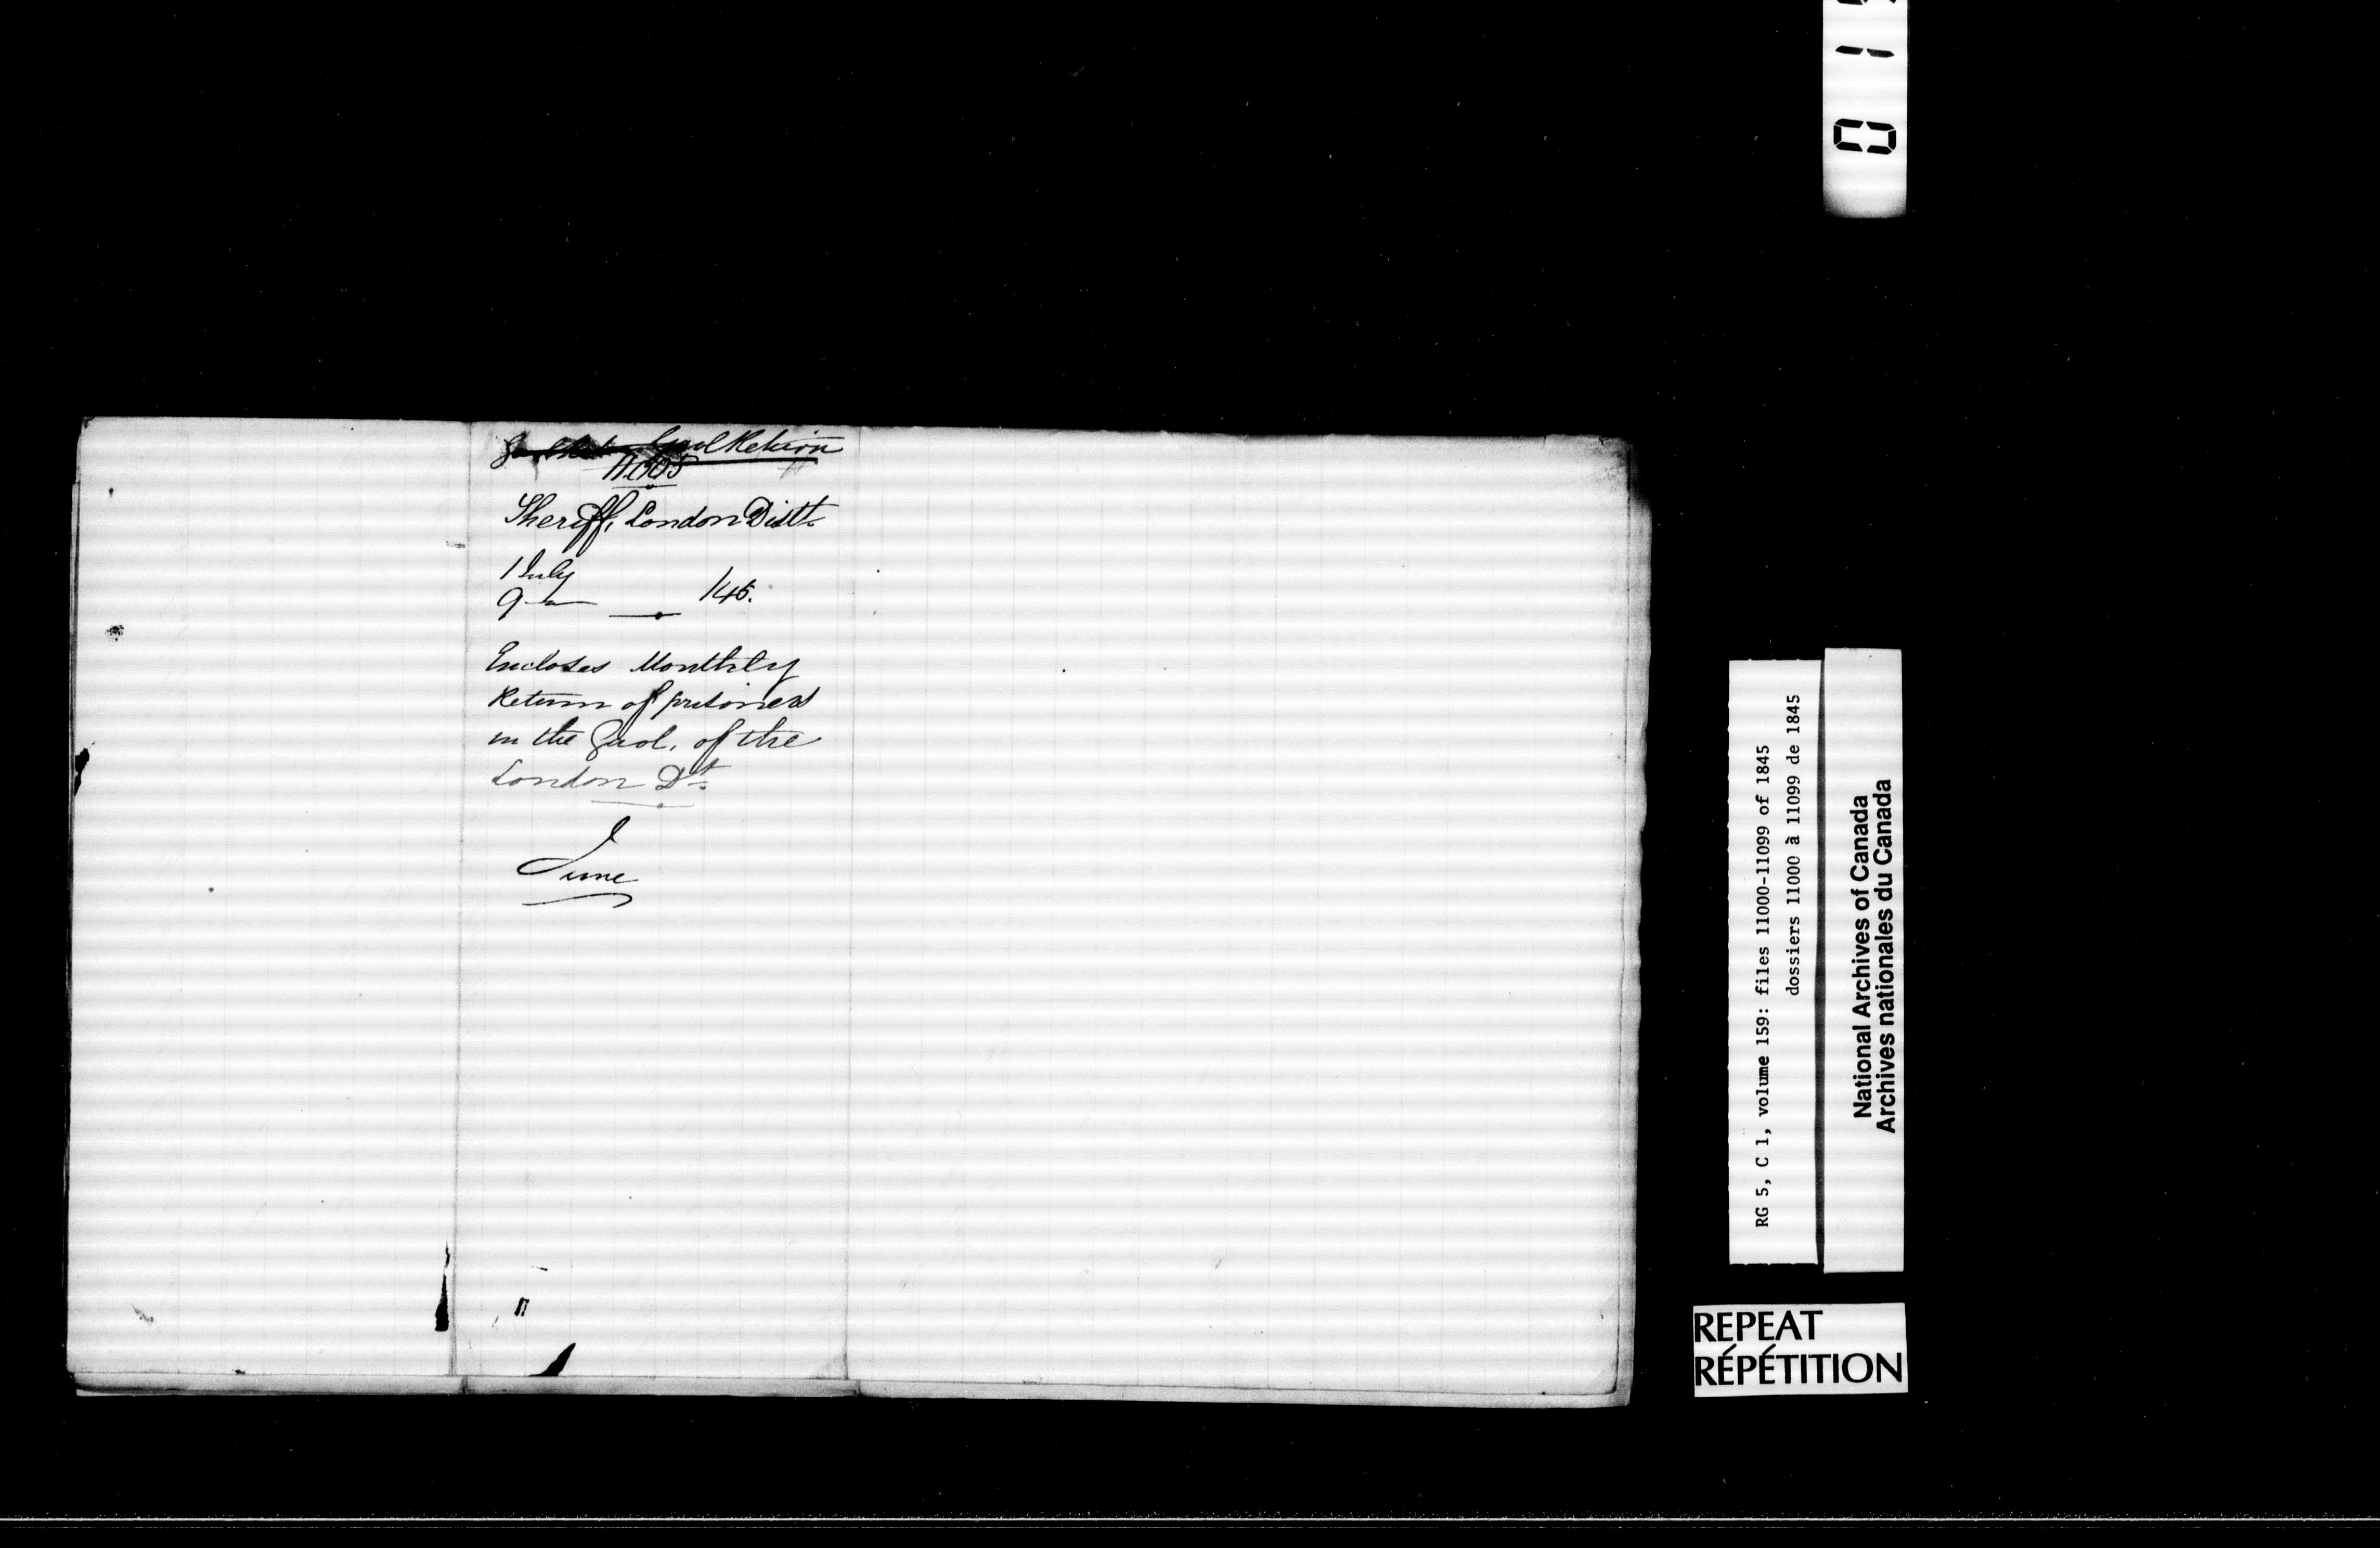 Gaol Return
11005
Sheriff, London Distt.
1 July
9 — — /45.
Encloses Monthly
Return of prisoners
in the Gaol, of the
London Dt.
June
RG 5, C 1, volume 159: files 11000-11099 of 1845
dossiers 11000 à 11099 de 1845
National Archives of Canada
Archives nationales du Canada
REPEAT
RÉPÉTITION
0 1